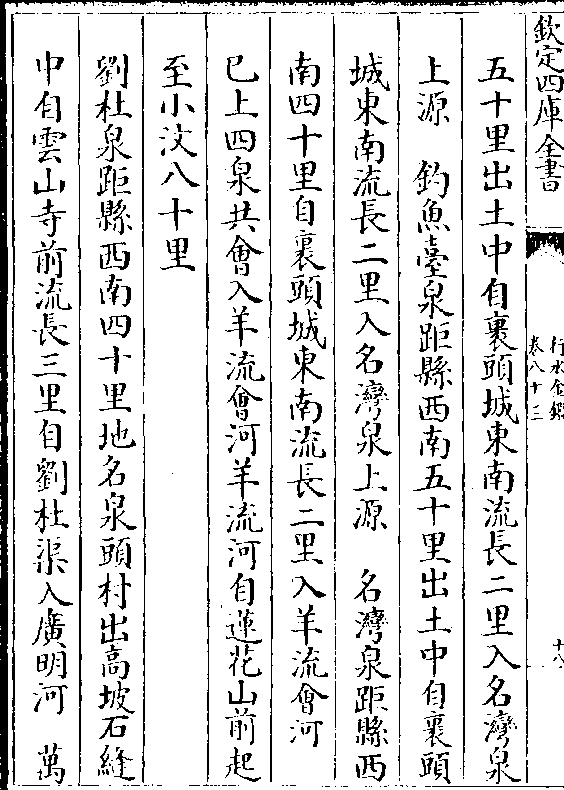 欽定四庫全書
行水金鑑
卷八十三
十八
五十里出土中自裏頭城東南流長二里入名灣泉
上源　釣魚臺泉距縣西南五十里出土中自裏頭
城東南流長二里入名灣泉上源　名灣泉距縣西
南四十里自裏頭城東南流長二里入羊流會河
已上四泉共會入羊流會河羊流河自蓮花山前起
至小汶八十里
劉杜泉距縣西南四十里地名泉頭村出高坡石縫
中自雲山寺前流長三里自劉杜渠入廣明河　萬